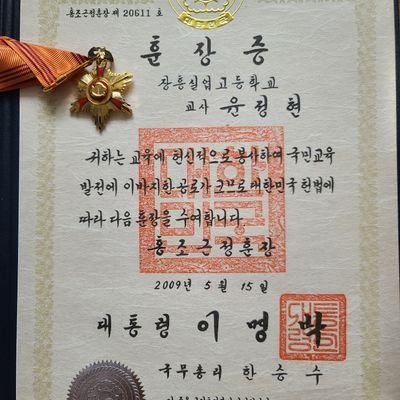 홍조근정훈장 제 20611 호
훈장증
장흥실업고등학교
교사 윤정현
귀하는 교육에 헌신적으로 봉사하여 국민교육
발전에 이바지한 공로가 크므로 대한민국 헌법에
따라 다음 훈장을 수여합니다
홍조근정훈장
2009년 5월 15일
대통령 이명박
국무총리 한승수